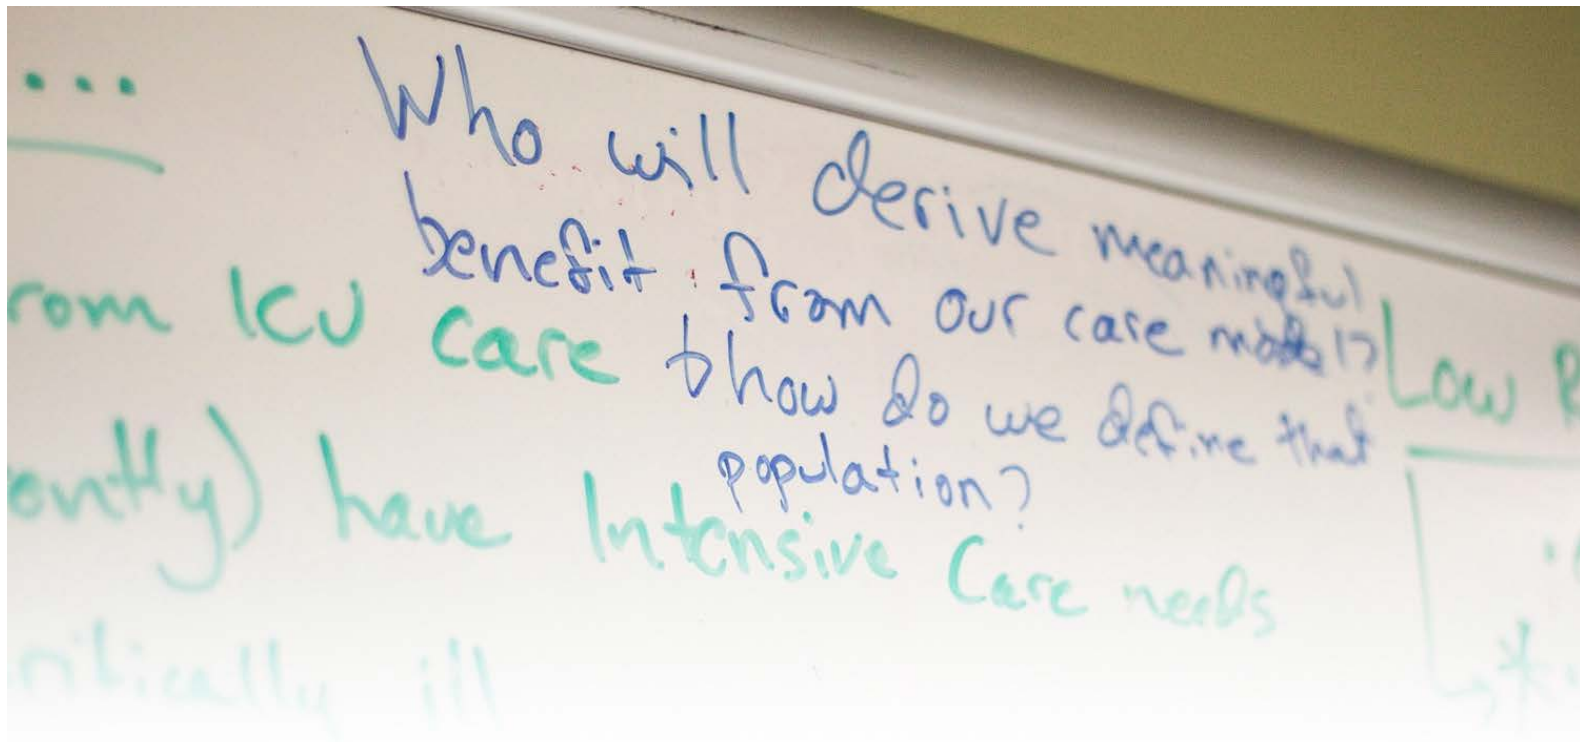 ...
Who will derive meaningful
benefit from our care model?
& how do we define that
population?
rom ICU care
ently) have Intensive Care needs
ritically ill
Low R